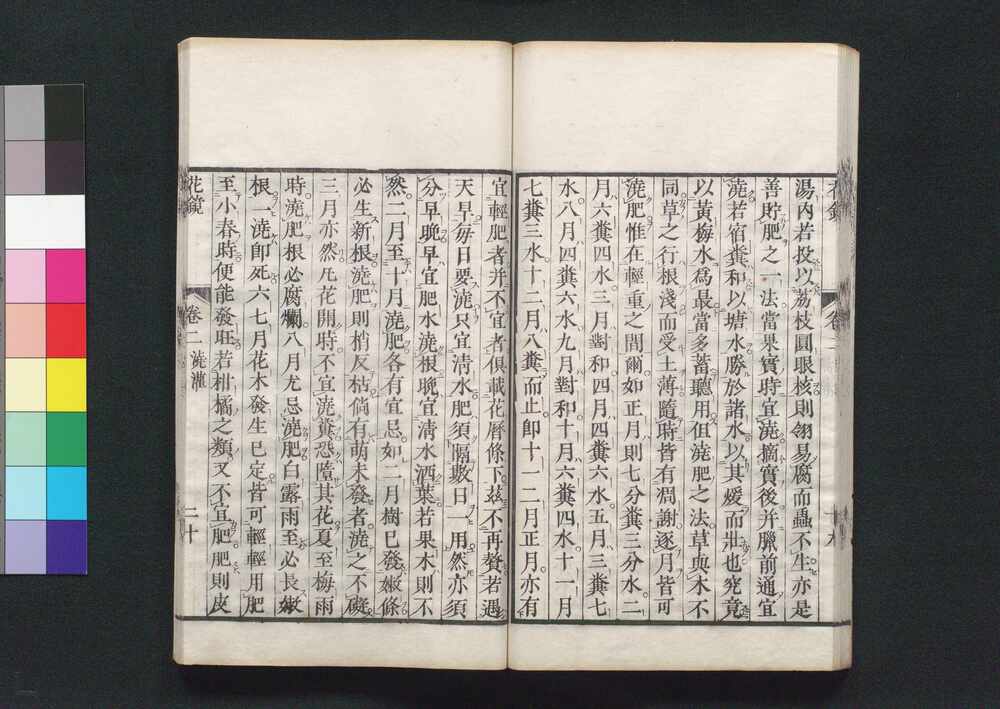 湯內若投以荔枝圓眼核則翎易腐而蟲不生亦是
善貯肥之一法當果實時宜澆摘實後并臘前通宜
澆若宿糞和以塘水勝於諸水以其煖而壯也究竟
以黃梅水爲最當多蓄聽用但澆肥之法草與木不
同草之行根淺而受土薄隨時皆有凋謝逐月皆可
澆肥惟在輕重之間爾如正月則七分糞三分水二
月六糞四水三月對和四月四糞六水五月三糞七
水八月四糞六水九月對和十月六糞四水十一月
七糞三水十二月八糞而止卽十一二月正月亦有
宜輕肥者并不宜者俱載花曆條下茲不再贅若遇
天旱每日要澆只宜淸水肥須隔數日一用然亦須
分早晚早宜肥水澆根晚宜淸水洒葉若果木則不
然二月至十月澆肥各有宜忌如二月樹已發嫰條
必生新根澆肥則梢反枯倘有萌未發者澆之不礙
三月亦然凡花開時不宜澆糞恐墮其花夏至梅雨
時澆肥根必腐爛八月尤忌澆肥白露雨至必長嫰
根一澆卽死六七月花木發生已定皆可輕輕用肥
至小春時便能發旺若柑橘之類又不宜肥肥則皮
花鏡 卷二 澆灌 二十